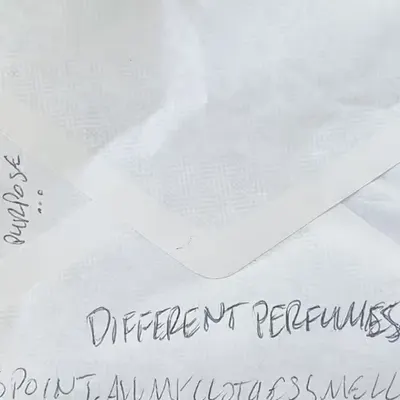 PURPOSE
...
DIFFERENT PERFUMES
POINT. ALL MY CLOTHES SMELL